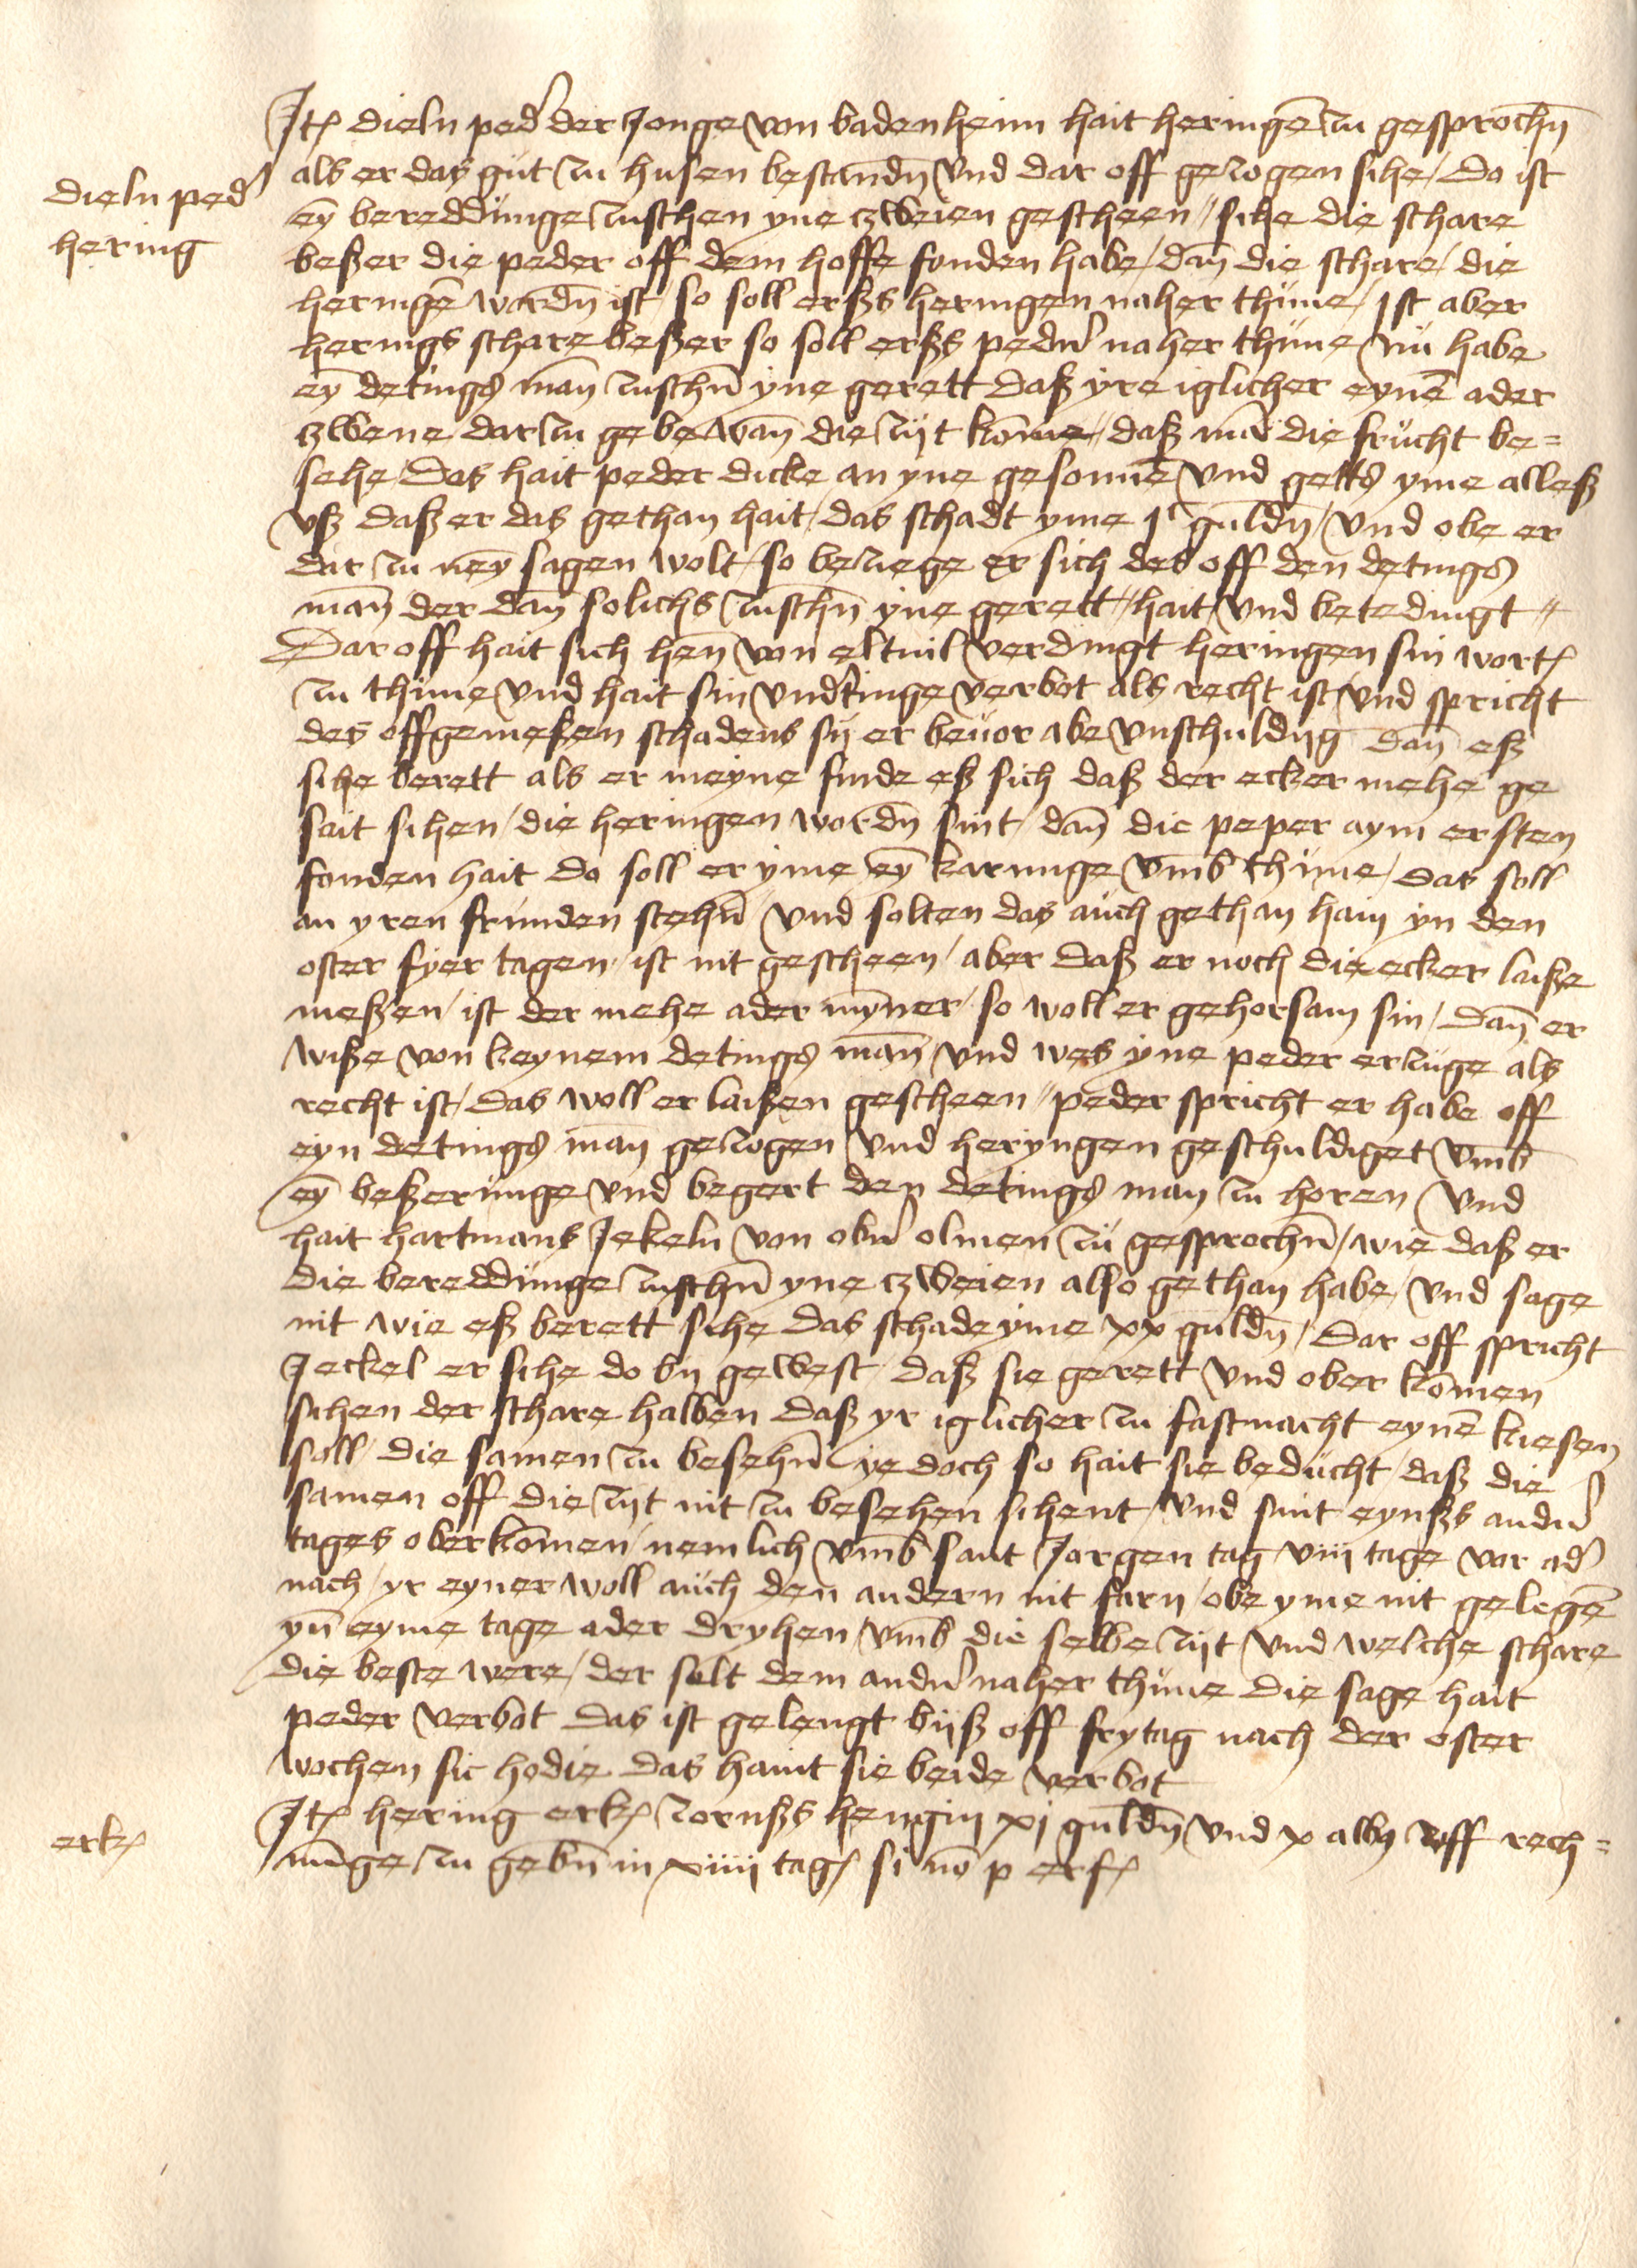 dieln ped'
hering
Jt(em) dieln ped' der Jonge von badenheim hait heringē zu gesprochn̄
als er das gut zu husen bestandn̄ vnd dar off gezogen sihe / Do ist
eȳ bereddūnge zuschen yne czweien gescheen // sihe die schare
beßer die peder off dem hoffe fonden habe / dan̄ die schare / die
heringē wordn̄ ist / so soll erßs heringen naher thūne / ist aber
herings schare beßer so soll erßs pedn' naher thūne / nū habe
eȳ detings man̄ zuschn̄ yne gerett daß yre iglicher eynē ader
czwene dar zu gebe wan̄ die zijt kōme // daß mā die frūcht be=
sehe / Das hait peder dicke an yne gesonnē vnd getts yme alleß
vß daß er das gethan hait / das schadt yme jᶜ guldn̄ / vnd obe er
dar zu neȳ sagen wolt / so beziege er sich des off den detings
man̄ der dan̄ solichs zuschn̄ yne gerett // hait / vnd betedingt //
Dar off hait sich hen̄ von eltuil verdingt heringen sin wort
zu thūne vnd hait sin vnd'tinge verbot als recht ist / vnd spricht
des offgemeßen schadens sij er beuor abe vnschuldijg dan̄ eß
sihe berett als er meyne finde eß sich daß der ecker mehe ge
sait sihen / die heringen wordn̄ sint / dan̄ die peper aym ersten
fonden hait do soll er yme eȳ karunge vmb thūne / das soll
an yren frunden stehn̄ / vnd solten das aūch gethan hain yn den
oster fyer tagen / ist nit gescheen / aber daß er noch die ecker laiße
meßen / ist der mehe ader mȳner / so woll er gehorsam sin / dan̄ er
wiße von keynem detings man̄ vnd wes yne peder erzuge als
recht ist / das woll er laißen gescheen // peder spricht er habe off
eyn detings man̄ gezogen vnd heryngen geschuldiget vmb
eȳ beßerūnge vnd begert den detings man zu horen / vnd
hait hartmans Jekeln von obn' olmen zū gesprochn̄ / wie daß er
die bereddūnge zuschn̄ yne czweien also gethan habe / vnd sage
nit wie eß berett sihe das schade yme xx guldn̄ / Dar off spricht
Jeckel er sihe do bij gewest / daß sie gerett vnd ober kōmen
sihen der schare halben daß yr iglicher zu fastnacht eynē kiesen
soll / die samen zu besehn̄ / ye doch so hait sie bedūcht / daß die
samen off die zijt nit zu besehen sihent / vnd sint eynßs andn'
tages oberkōmen / nemlich vmb sant Jorgen tag viij tage vor ad'
nach / yr eyner woll aūch den andern nit farn / obe yme nit gelegē
yn̄ eyme tage ader dryhen / vmb die selbe zijt vnd welche schare
die beste were / der solt dem andn' naher thūne die sage hait
peder verbot das ist gelengt bijß off frytag nach der oster
wochen sic hodie das haint sie beide verbot
Jt(em) hering erk(ennt) zornßs hengin xj guldn̄ vnd x alb(us) vff rech=
erk(ennt)
nūnge zu gebn̄ in xiiij tag(en) si nō p erf(olgt)